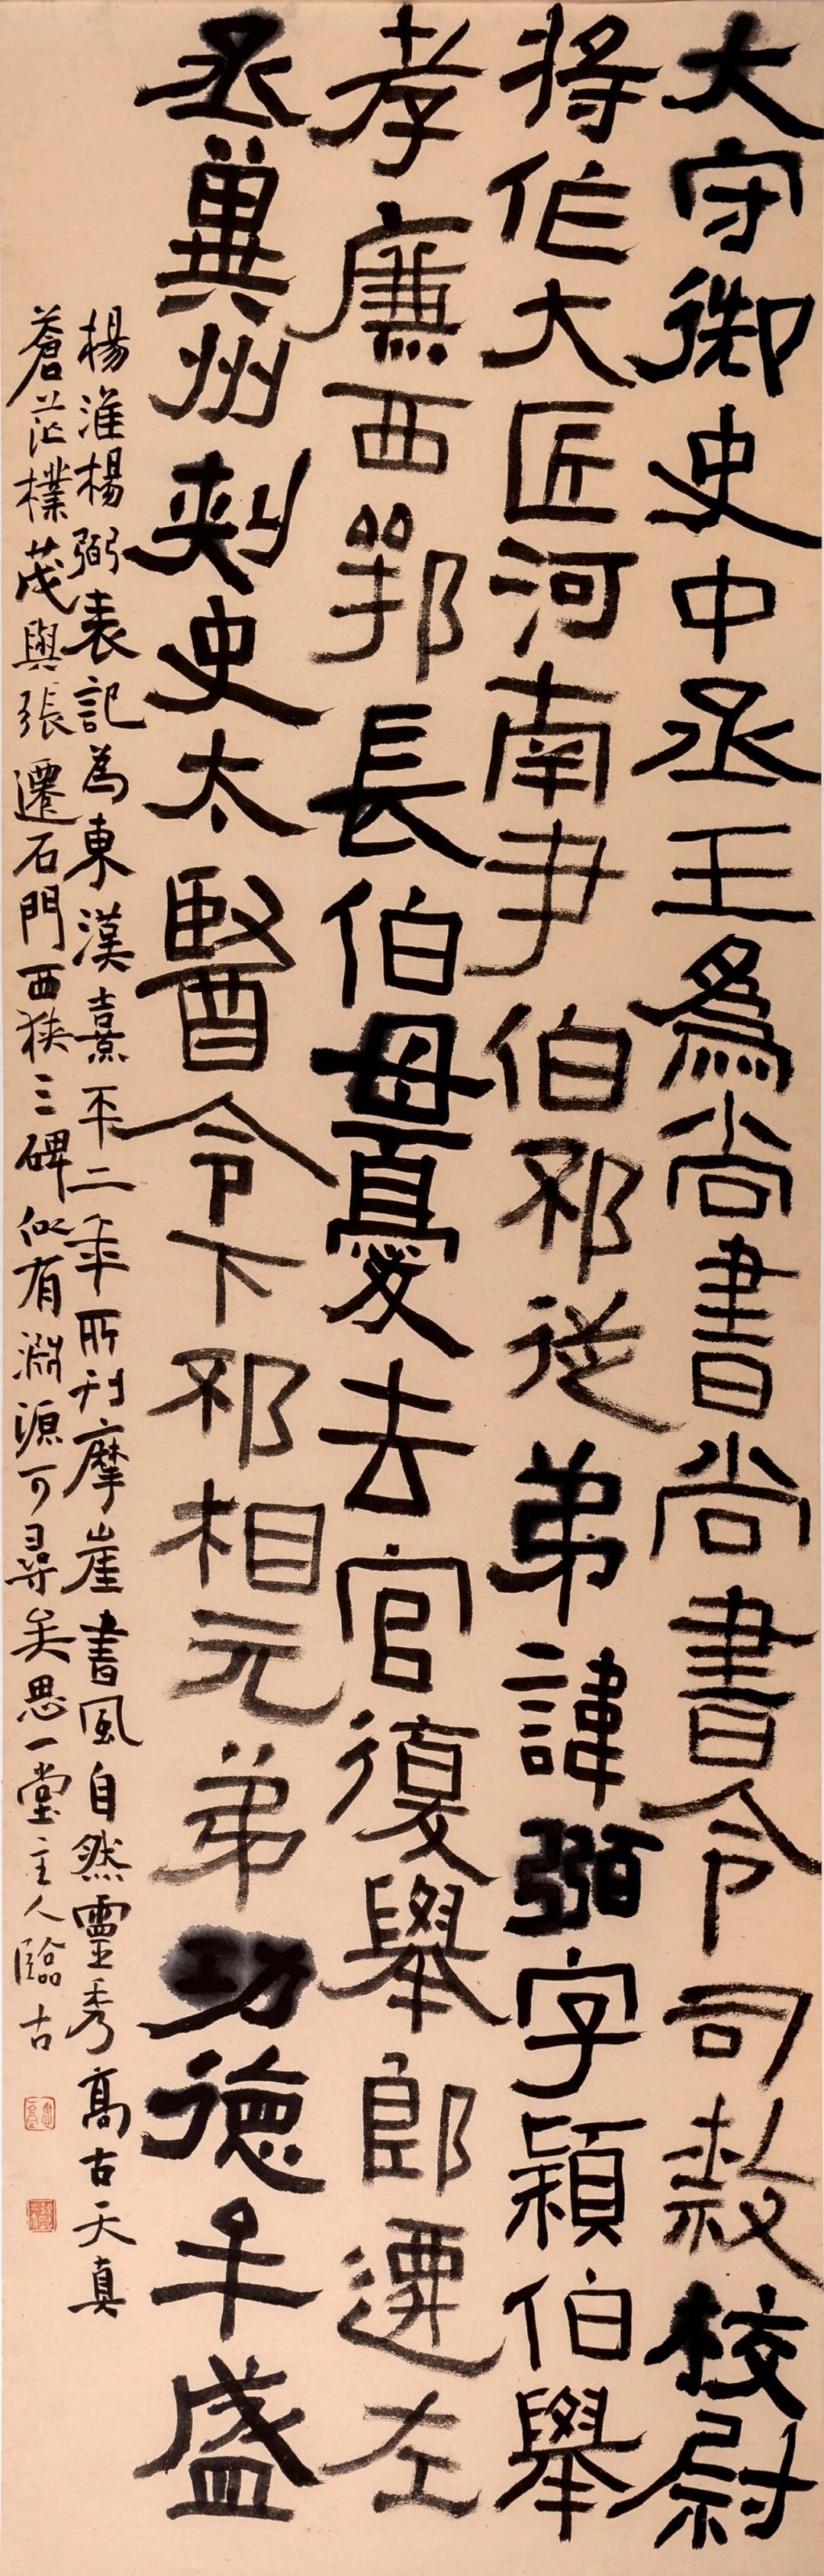 大守御史中丞王為尚書尚書令司敖校尉
将作大匠河南尹伯邳從弟諱弼字穎伯舉
孝廉西鄂長伯母憂去官復舉郎遷左
丞冀州刺史太醫令下邳相元弟功德牟盛
楊淮楊弼表記為東漢熹平二年所刊摩崖書風自然靈秀高古天真
蒼茫樸茂與張遷石門西狹三碑似有淵源可尋矣思一堂主人臨古